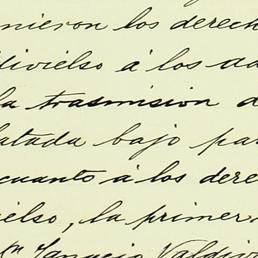 nieron los derech
divielso á los da
la trasmision d
atada bajo pa
cuanto á los dere
ielso, la primer
Ignacio Valdiv